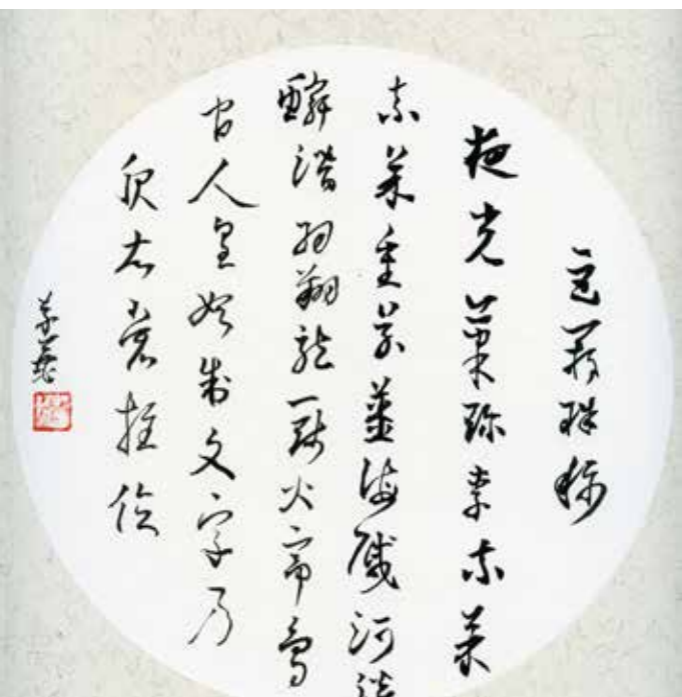 巨闕珠稱
夜光菓珍李柰菜
柰菜重芥薑海鹹河淡
鱗潛羽翔龍師火帝鳥
官人皇始制文字乃
服衣裳推位